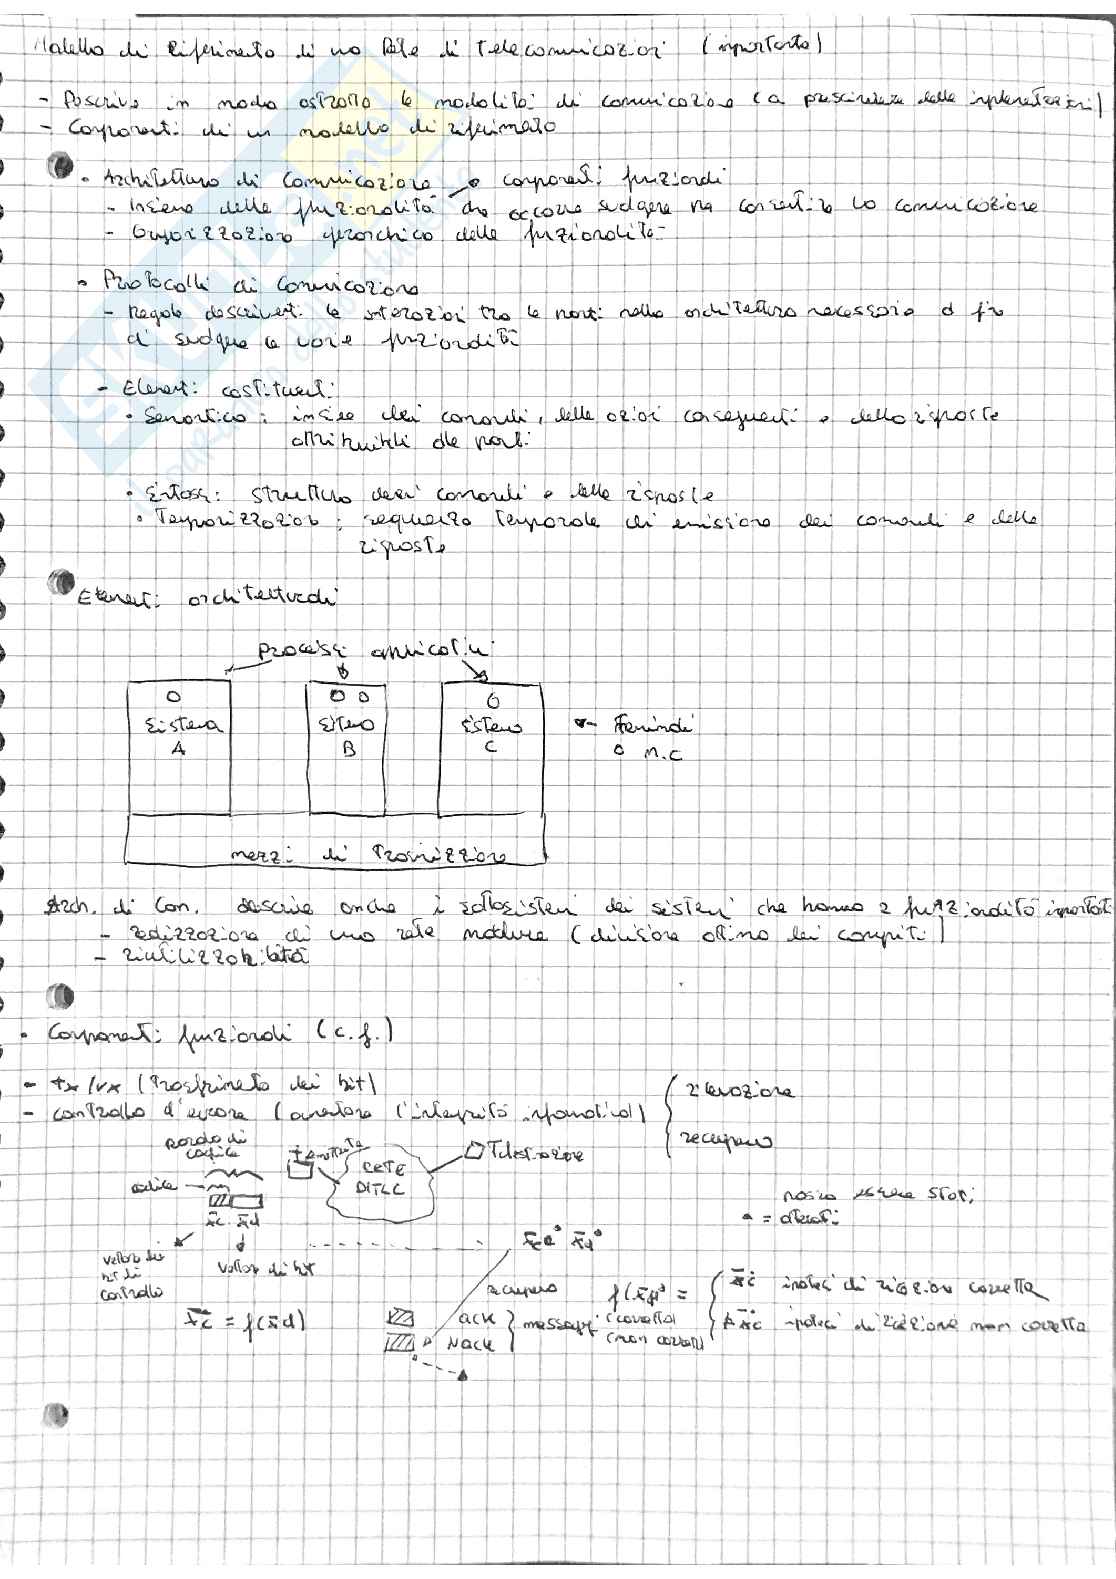 Modello di riferimento di una Rete di telecomunicazioni (importante)
- Descrive in modo astratto le modalità di comunicazione (a prescindere dalle implementazioni)
- Componenti di un modello di riferimento
• Architettura di comunicazione → componenti funzionali
- Insieme delle funzionalità che occorre svolgere per consentire la comunicazione
- Organizzazione gerarchica delle funzionalità
• Protocolli di comunicazione
- Regole descriventi le interazioni tra le parti nella architettura necessarie al fine
di svolgere le varie funzionalità
- Elementi costituenti:
• Semantica: insieme dei comandi, delle azioni conseguenti e delle risposte
attribuibili alle parti
• Sintassi: struttura dei comandi e delle risposte
• Temporizzazione: sequenza temporale di emissione dei comandi e delle
risposte
Elementi architetturali
processi applicativi
Sistema A
Sistema B
Sistema C
← Terminali
o N.C
mezzi di trasmissione
Arch. di Com. descrive anche i sottosistemi dei sistemi che hanno 2 funzionalità importanti
- realizzazione di una rete modulare (divisione ottima dei compiti)
- riutilizzabilità
• Componenti funzionali (c.f.)
- tx/rx (trasferimento dei bit)
- controllo d'errore (garantire l'integrità informativa)
rilevazione
recupero
parola di codice
codice
x̄c x̄d
vettore dei bit di controllo
vettore di bit
emittente
RETE DI TLC
destinazione
possono essere stati
* = alterati
x̄c* x̄d*
recupero
x̄c = f(x̄d)
ack
Nack
messaggi
(corretto)
(non corretto)
f(x̄d)* =
x̄c* ipotesi di ricezione corretta
≠ x̄c* ipotesi di ricezione non corretta